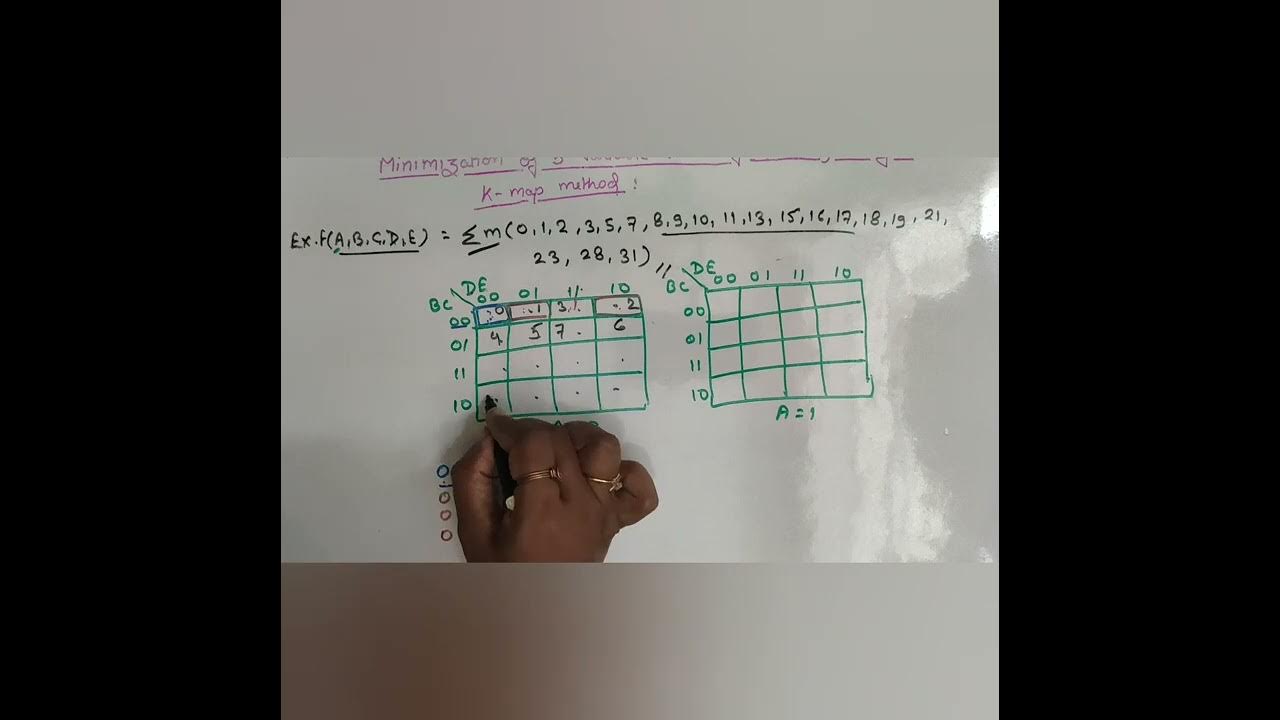 Minimization of 5
K-map method :
Ex. F(A,B,C,D,E) = Σm(0,1,2,3,5,7,8,9,10,11,13,15,16,17,18,19,21,
23, 28, 31) //
DE DE
BC 00 01 11 10 BC 00 01 11 10
00 0 1 3 2 00
01 4 5 7 6 01
11 11
10 10
A=1
0
0
0
0